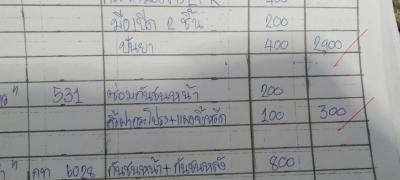 มือเปิด 2 ชิ้น 200
ปันยา 400 2900
531 ซ่อมกันชนหน้า 200
สีฝากระโปรง+แผงจิ้งหรีด 100 300
กท 6028 กันชนหน้า+กันชนหลัง 800